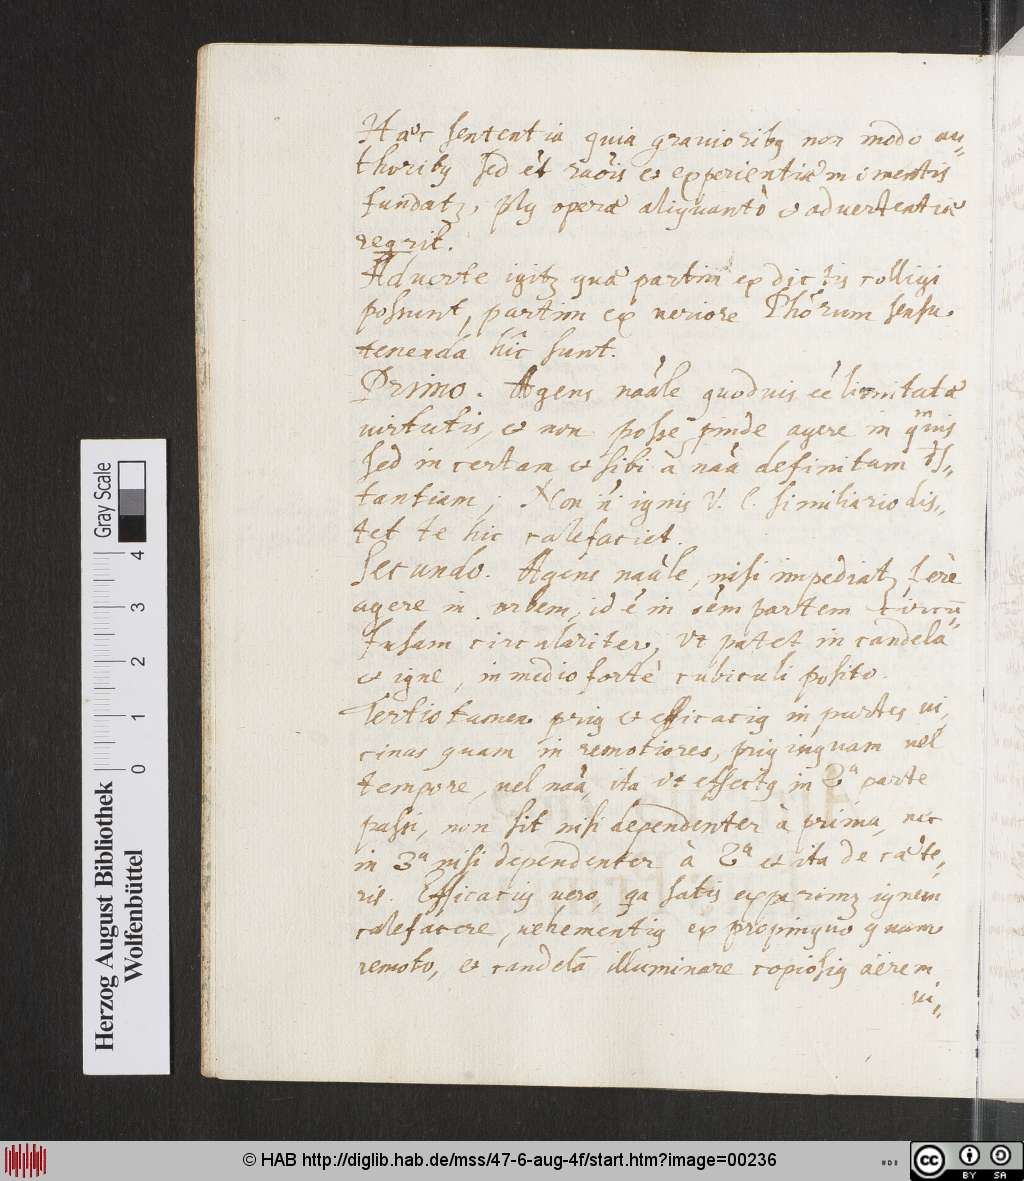 Haec sententia quia grauioribq non modo au„
thoribq sed ēt raōis et experientiae m o mentis
fundatz, plq operae aliquantò et aduertentiae
reqrit.
Aduerte igitz quae partim ex dictis colligi
possunt, partim ex veriore Phōrum sensu
tenenda hîc sunt.
Primo. Agens naāle quoduis eē limitatae
virtutis, et non posse pinde agere in qmuis
sed in certam et sibi à naā definitam dis„
tantiam; Non n̄ ignis v. l. si miliario dis„
tet te hic calefaciet.
Secundo. Agens naāle, nisi impediatz
agere in orbem, id ē in oēm partem circū„
fusam circulariter, vt patet in candela
et igne, in medio fortè cubiculi posito.
Tertio tamen priq et efficaciq in partes vi„
cinas quam in remotiores, priq inquam vel
tempore, vel naā, ita vt effectq in 2a parte
passi, non sit nisi dependenter à prima, nec
in 3a nisi dependenter à 2a et ita de caete„
ris. Efficaciq vero, qa satis experimz ignem
calefacere, vehementiq ex propinquo quam
remoto, et candelā illuminare copiosiq aërem
vi„
Gray Scale
0 1 2 3 4
Herzog August Bibliothek
Wolfenbüttel
© HAB http://diglib.hab.de/mss/47-6-aug-4f/start.htm?image=00236
cc BY SA